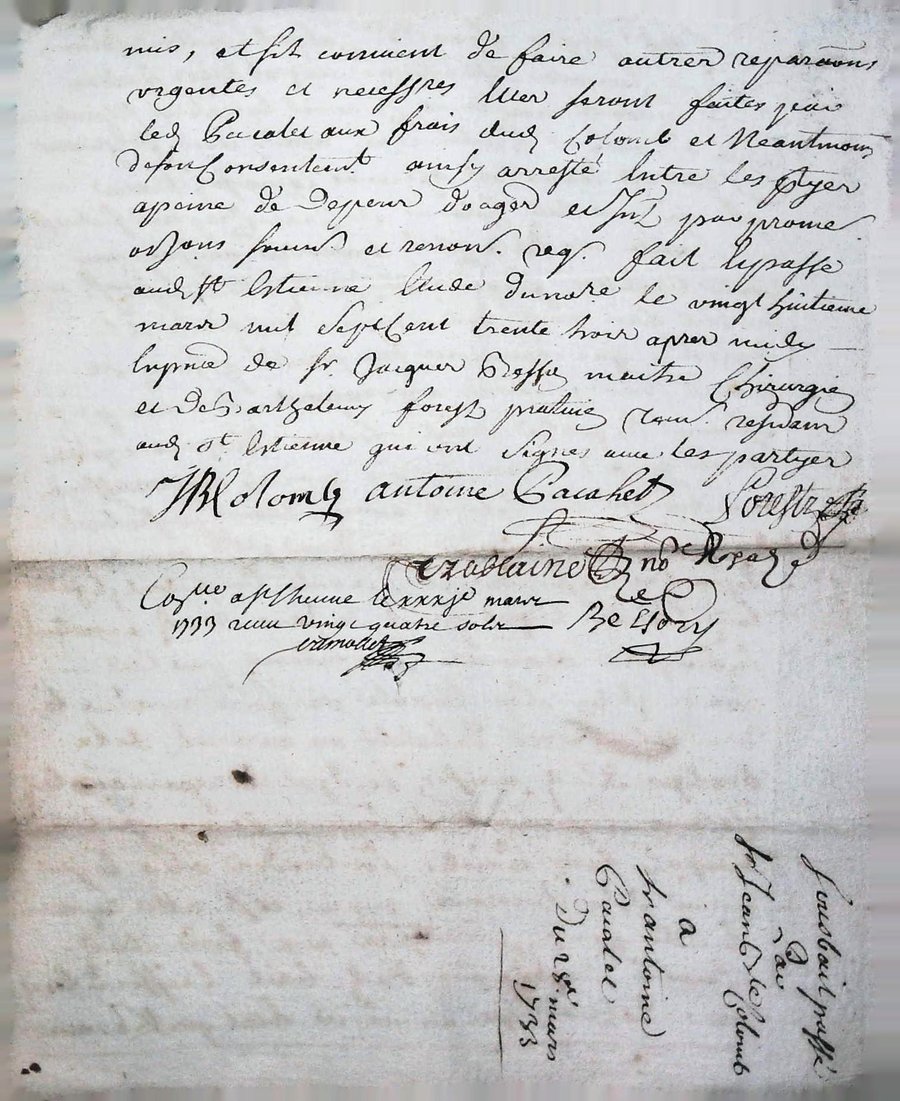 mis, et sil convient de faire autres reparaōns
urgentes et necessres Elles seront faites par
led Pacalet aux frais dud Colomb et Neantmoins
de son Consentemt. ainsy arresté Entre les ptyes
a peine de depens doages et Intz par prome.
et renon. req. fait et passé
aud st Estienne Etude du nore le vingt huitieme
mars mil sept Cent trente trois apres midy
En pnce de sr Jacques maitre Chirurgien
et de Barthelemy forest praticien resident
aud st. Estienne qui ont signes avec les partyes
JB Colomb antoine Pacahet Forest
no Royal
a st Etienne le xxxje mars
1733 recu vingt quatre sols
Sousbail passé
Par
sr Jean Bte Colomb
a
sr antoine
Pacalet
Du 28e. mars
1733